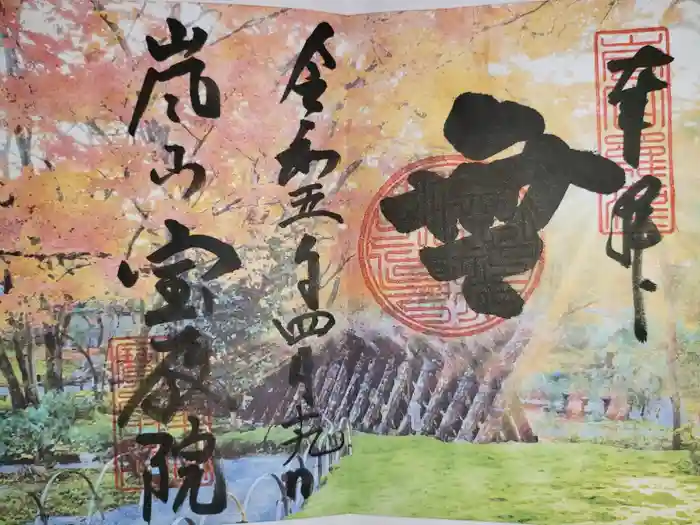 奉拝
無
令和五年四月九日
嵐山 宝厳院